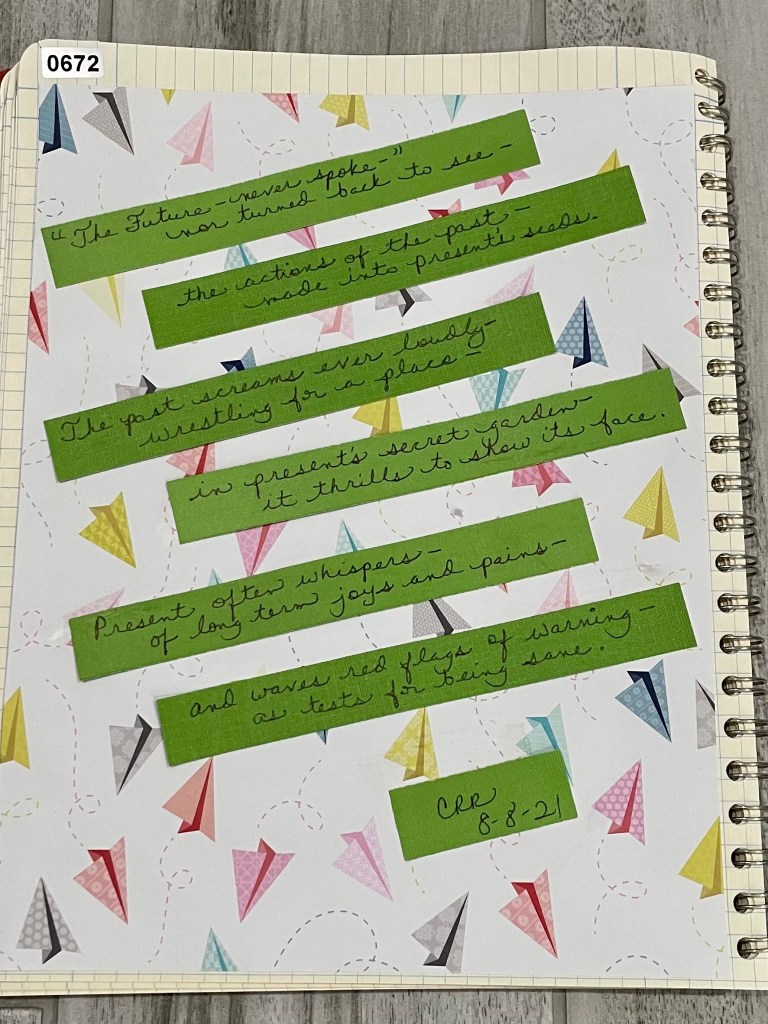 0672
"The Future - never spoke -"
nor turned back to see -
the actions of the past -
made into present's seeds.
The past screams ever loudly -
wrestling for a place -
in present's secret garden -
it thrills to show its face.
Present often whispers -
of long term joys and pains -
and waves red flags of warning -
as tests for being sane.
CRR
8-8-21